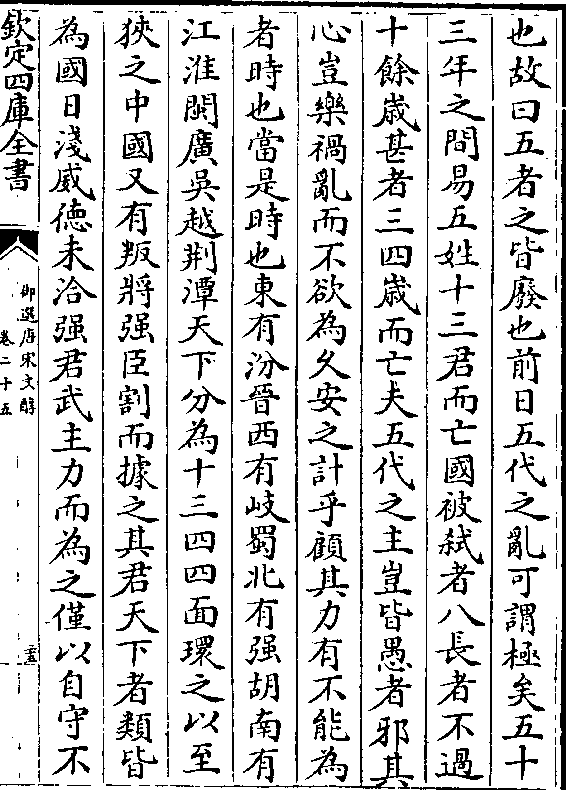 也故曰五者之皆廢也前日五代之亂可謂極矣五十
三年之間易五姓十三君而亡國被弑者八長者不過
十餘歲甚者三四歲而亡夫五代之主豈皆愚者邪其
心豈樂禍亂而不欲為久安之計乎顧其力有不能為
者時也當是時也東有汾晉西有岐蜀北有强胡南有
江淮閩廣吳越荆潭天下分為十三四四面環之以至
狹之中國又有叛將强臣割而據之其君天下者類皆
為國日淺威德未洽强君武主力而為之僅以自守不
欽定四庫全書
御選唐宋文醇
卷二十五